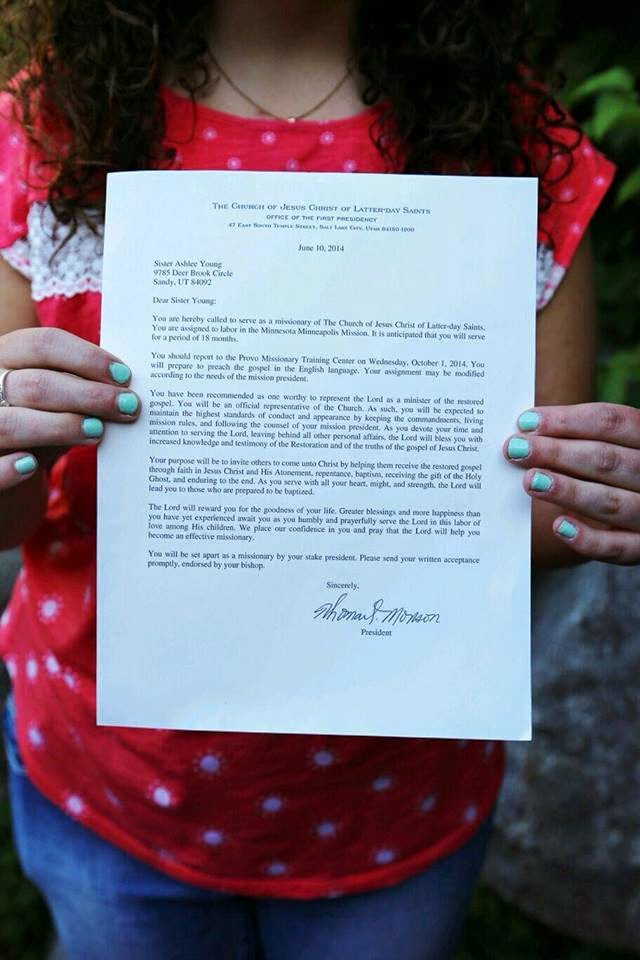 THE CHURCH OF JESUS CHRIST OF LATTER-DAY SAINTS
OFFICE OF THE FIRST PRESIDENCY
47 EAST SOUTH TEMPLE STREET, SALT LAKE CITY, UTAH 84150-1000
June 10, 2014
Sister Ashlee Young
9785 Deer Brook Circle
Sandy, UT 84092
Dear Sister Young:
You are hereby called to serve as a missionary of The Church of Jesus Christ of Latter-day Saints.
You are assigned to labor in the Minnesota Minneapolis Mission. It is anticipated that you will serve
for a period of 18 months.
You should report to the Provo Missionary Training Center on Wednesday, October 1, 2014. You
will prepare to preach the gospel in the English language. Your assignment may be modified
according to the needs of the mission president.
You have been recommended as one worthy to represent the Lord as a minister of the restored
gospel. You will be an official representative of the Church. As such, you will be expected to
maintain the highest standards of conduct and appearance by keeping the commandments, living
mission rules, and following the counsel of your mission president. As you devote your time and
attention to serving the Lord, leaving behind all other personal affairs, the Lord will bless you with
increased knowledge and testimony of the Restoration and of the truths of the gospel of Jesus Christ.
Your purpose will be to invite others to come unto Christ by helping them receive the restored gospel
through faith in Jesus Christ and His Atonement, repentance, baptism, receiving the gift of the Holy
Ghost, and enduring to the end. As you serve with all your heart, might, and strength, the Lord will
lead you to those who are prepared to be baptized.
The Lord will reward you for the goodness of your life. Greater blessings and more happiness than
you have yet experienced await you as you humbly and prayerfully serve the Lord in this labor of
love among His children. We place our confidence in you and pray that the Lord will help you
become an effective missionary.
You will be set apart as a missionary by your stake president. Please send your written acceptance
promptly, endorsed by your bishop.
Sincerely,
Thomas S. Monson
President